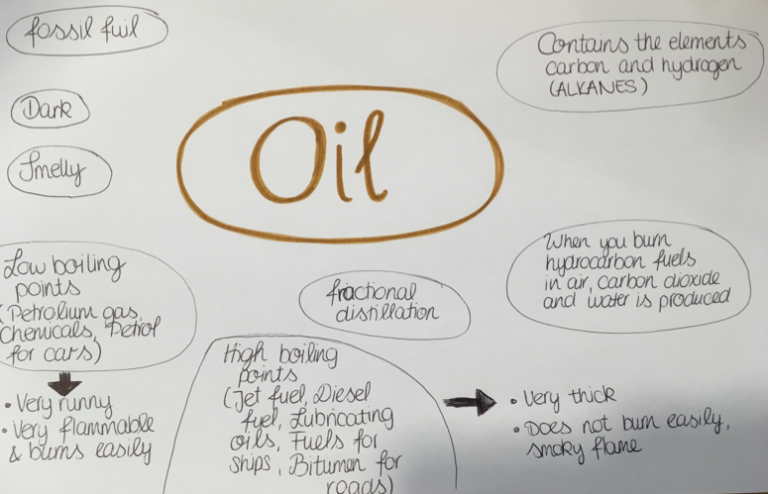 fossil fuil
Contains the elements
carbon and hydrogen
(ALKANES)
Dark
Smelly
Oil
Low boiling
points
(Petrolium gas,
Chemicals, Petrol
for cars)
• Very runny
• Very flammable
& burns easily
fractional
distillation
When you burn
hydrocarbon fuels
in air, carbon dioxide
and water is produced
High boiling
points
(Jet fuel, Diesel
fuel, Lubricating
oils, Fuels for
ships, Bitumen for
roads)
• Very thick
• Does not burn easily,
smoky flame